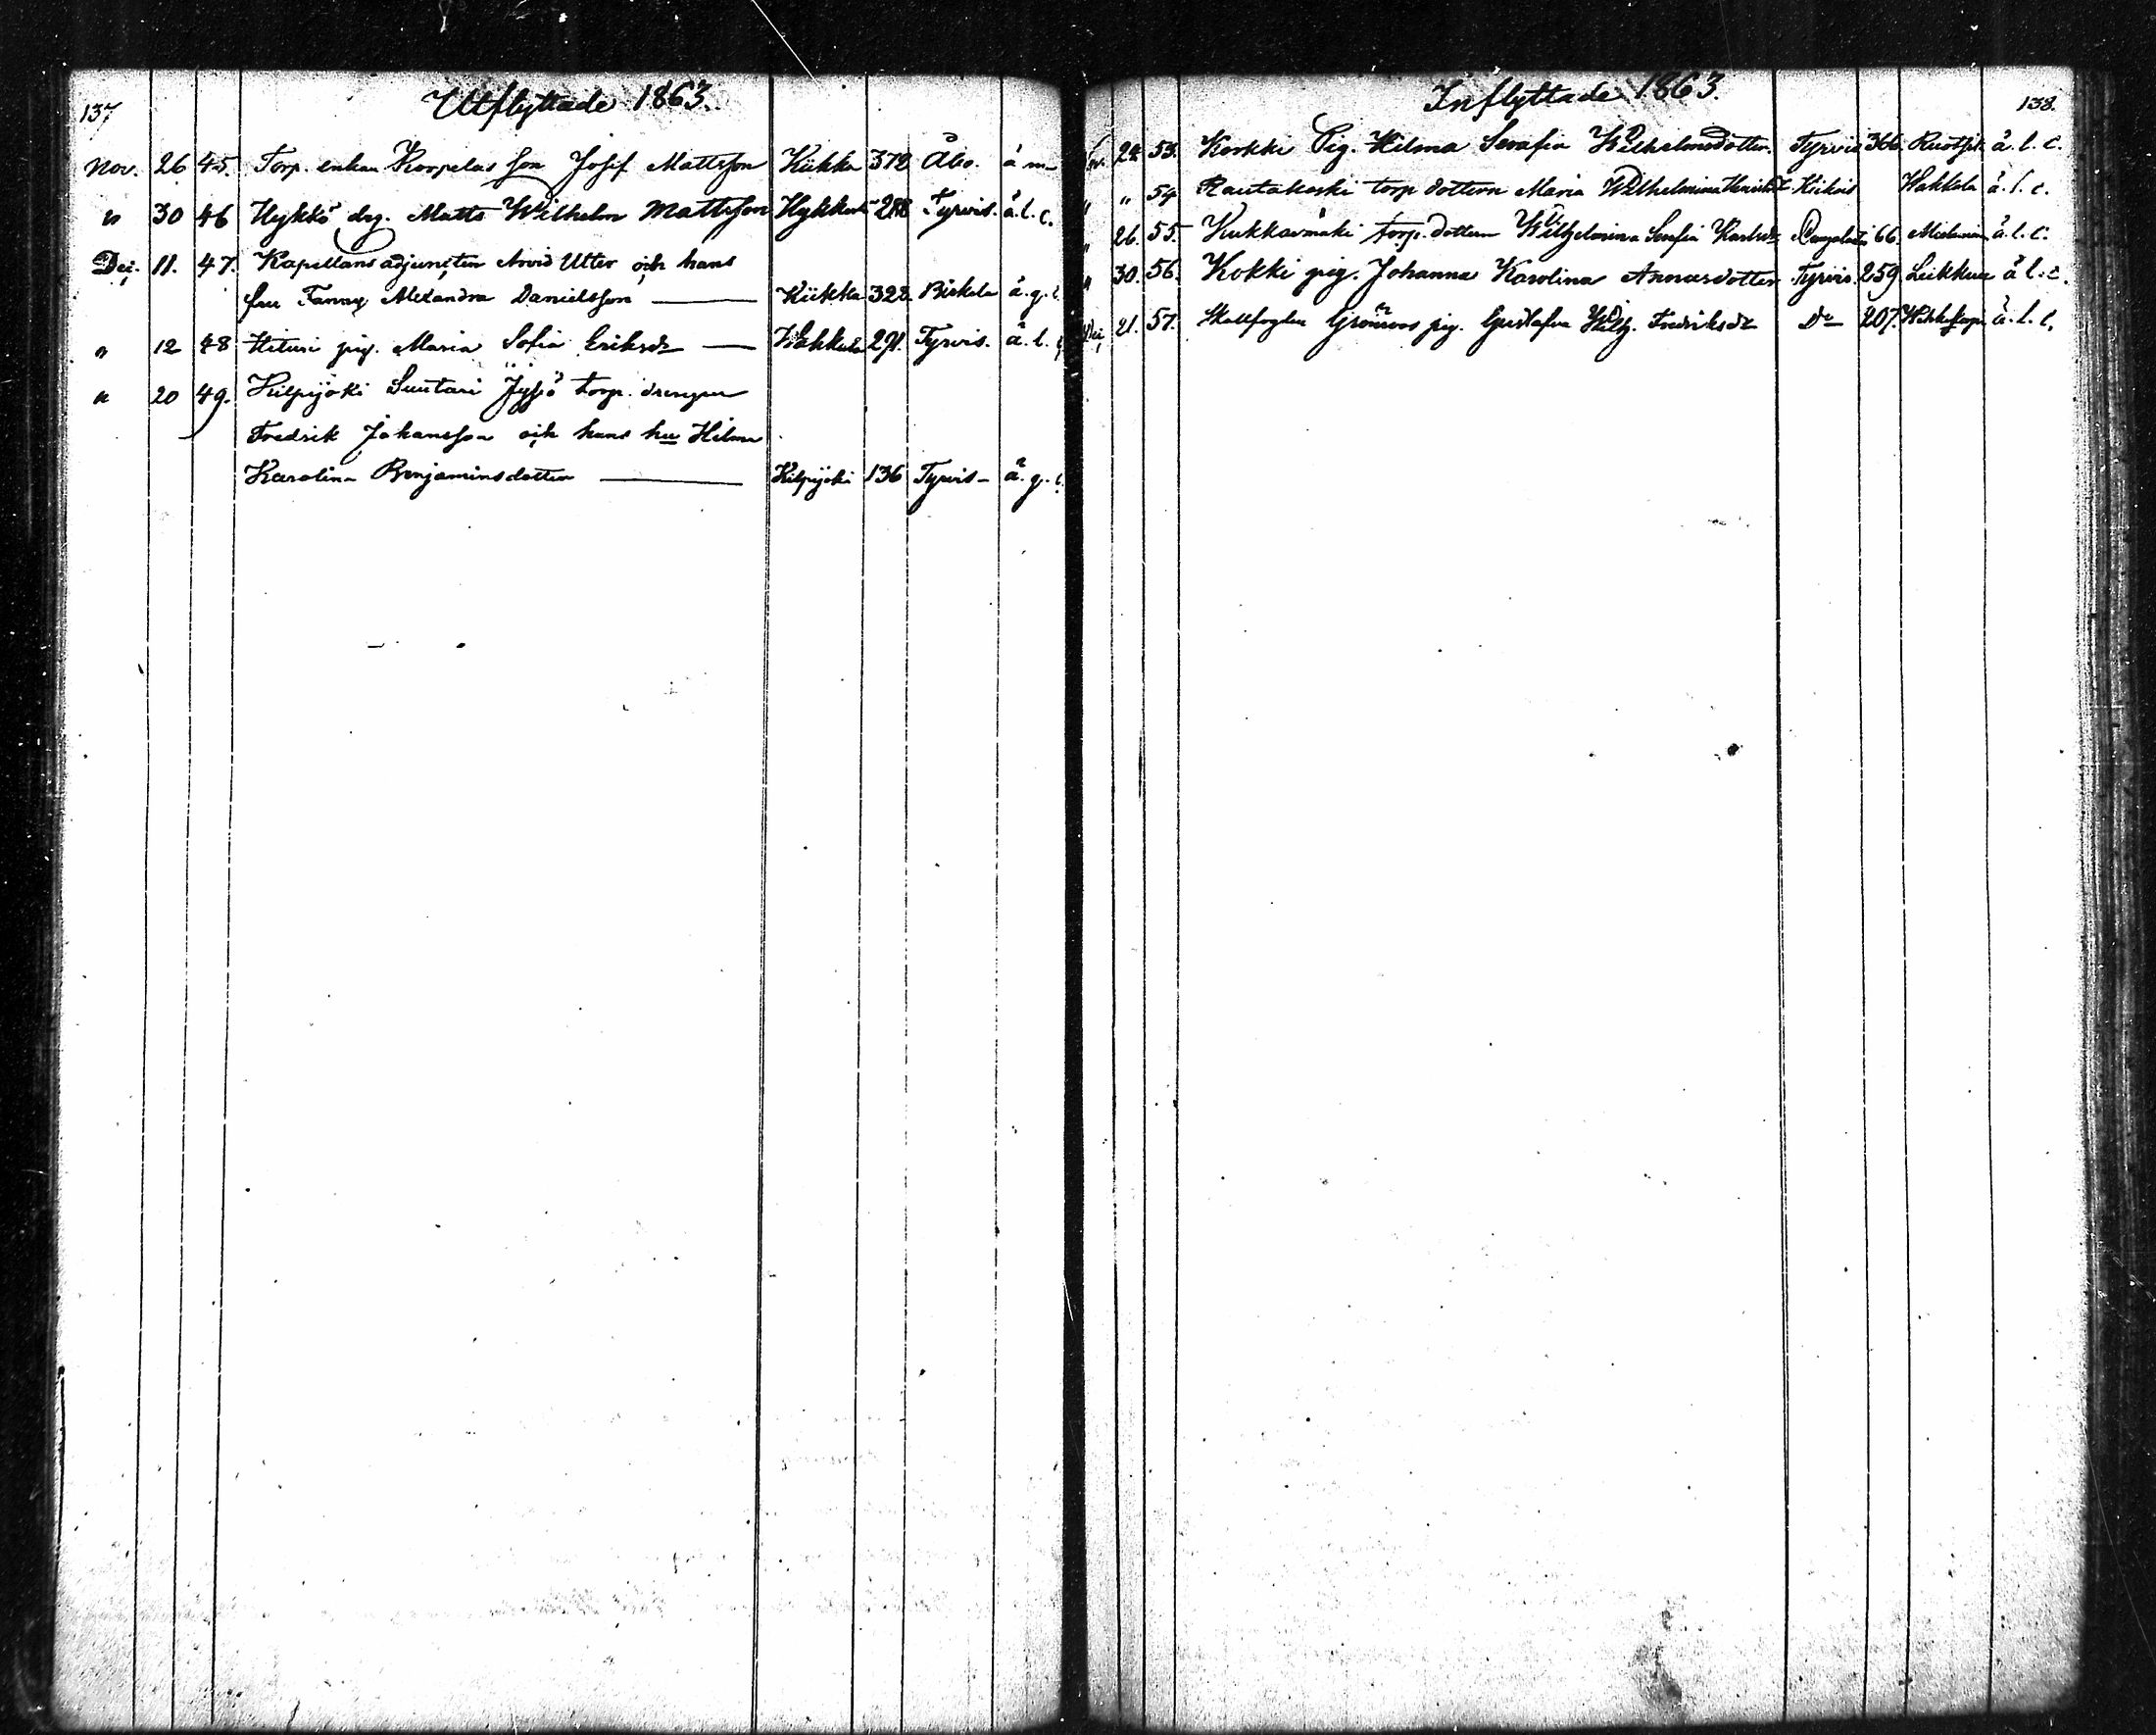 137
Utflyttade 1863.
Nov. 26 45. Torp. enkan Korpelas son Josef Mattsson Kiikka 372 Åbo. ä m
" 30 46 Hykkö drg. Matts Wilhelm Mattsson 288 Tyrvis. ä. l. c.
Dec. 11. 47. Kapellans adjuncten Arvid Utter och hans
fru Fanny Alexandra Danielsson — Kiikka 328. Birkala ä. g. c.
" 12 48 Hituri pig. Maria Sofia Eriksdr — 291. Tyrvis. ä. l. c.
" 20 49. Kilpijoki Suutari torp. drengen
Fredrik Johansson och hans hu Hilma
Karolina Benjaminsdotter — Kilpijoki 136 Tyrvis — ä. g. c.
138.
Inflyttade 1863.
Nov. 24. 53. Korkki Pig. Hilma Serafia Wilhelmsdotter. Tyrvis 366. ä. l. c.
" " 54 Rautakoski torp dottern Maria Wilhelmina Kiikois Wakkola ä. l. c.
" 26. 55. Kukkarmäki torp. dottern Wilhelmina Serafia Karlsdr 66. ä. l. c.
" 30. 56. Kokki pig. Johanna Karolina Annasdotter Tyrvis. 259. Leikkuu ä l. c.
Dec 21. 57. Grönroos pig. Gustafva Wilh. Fredriksdr Do 207. ä. l. c.